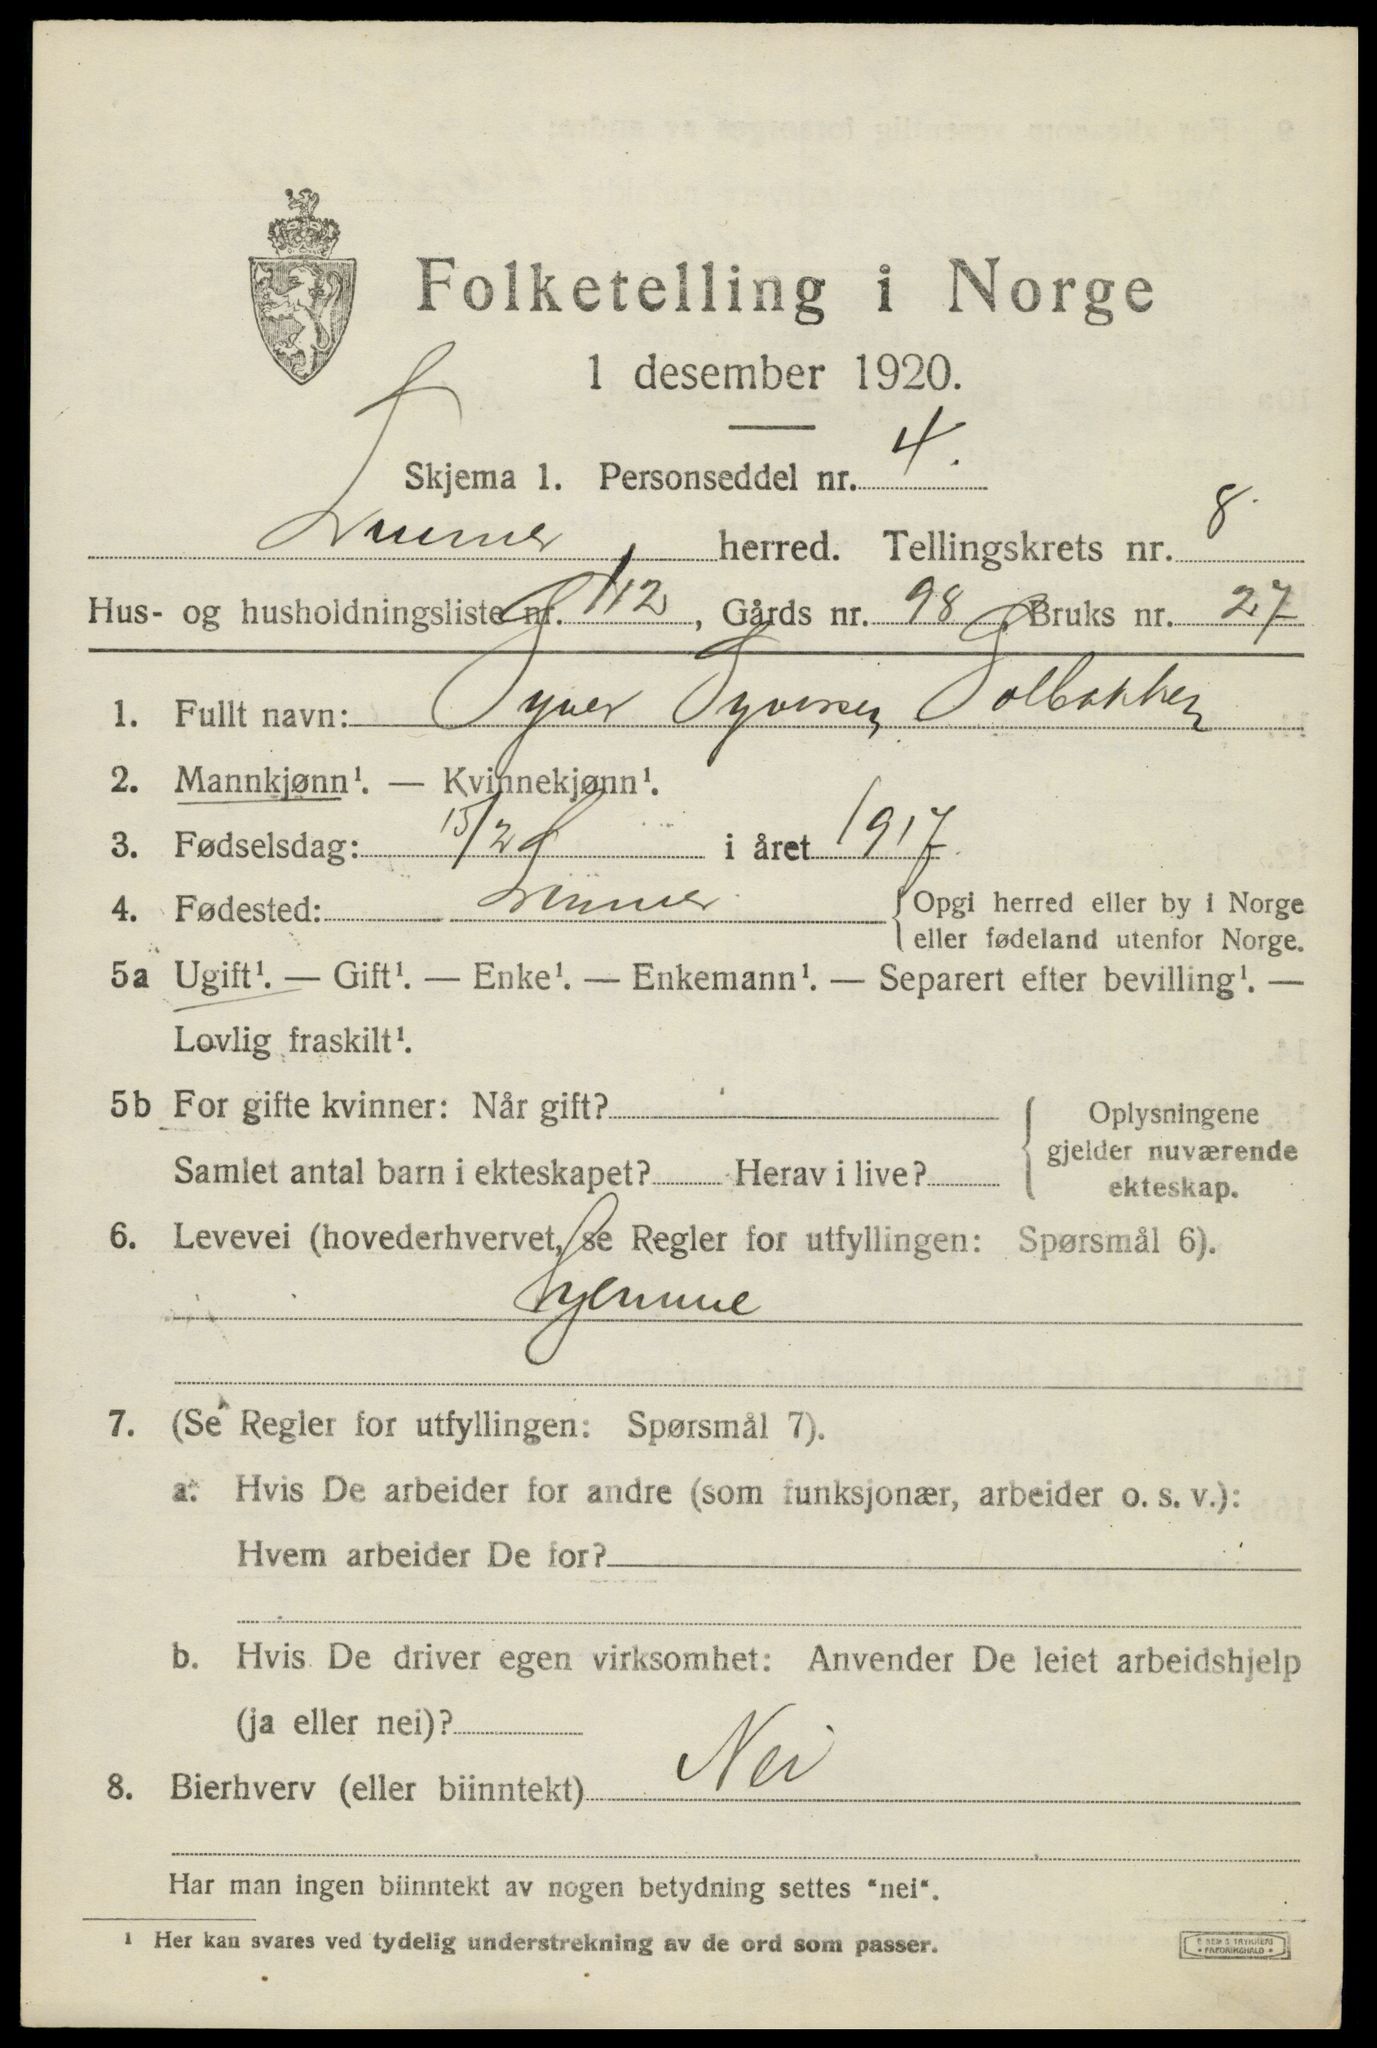 Folketelling i Norge
1 desember 1920.
Skjema 1. Personseddel nr. 4.
Lunner herred. Tellingskrets nr. 8
Hus- og husholdningsliste nr. 112, Gårds nr. 98, Bruks nr. 27
1. Fullt navn: Syver Syversen Solbakken
2. Mannkjønn¹. — Kvinnekjønn¹.
3. Fødselsdag: 15/2 i året 1917
4. Fødested: Lunner { Opgi herred eller by i Norge
eller fødeland utenfor Norge.
5a Ugift¹. — Gift¹. — Enke¹. — Enkemann¹. — Separert efter bevilling¹. —
Lovlig fraskilt¹.
5b For gifte kvinner: Når gift?
Samlet antal barn i ekteskapet? Herav i live?
{ Oplysningene
gjelder nuværende
ekteskap.
6. Levevei (hovederhvervet, se Regler for utfyllingen: Spørsmål 6).
Hjemme
7. (Se Regler for utfyllingen: Spørsmål 7).
a. Hvis De arbeider for andre (som funksjonær, arbeider o. s. v.):
Hvem arbeider De for?
b. Hvis De driver egen virksomhet: Anvender De leiet arbeidshjelp
(ja eller nei)?
8. Bierhverv (eller biinntekt) Nei
Har man ingen biinntekt av nogen betydning settes "nei".
¹ Her kan svares ved tydelig understrekning av de ord som passer.